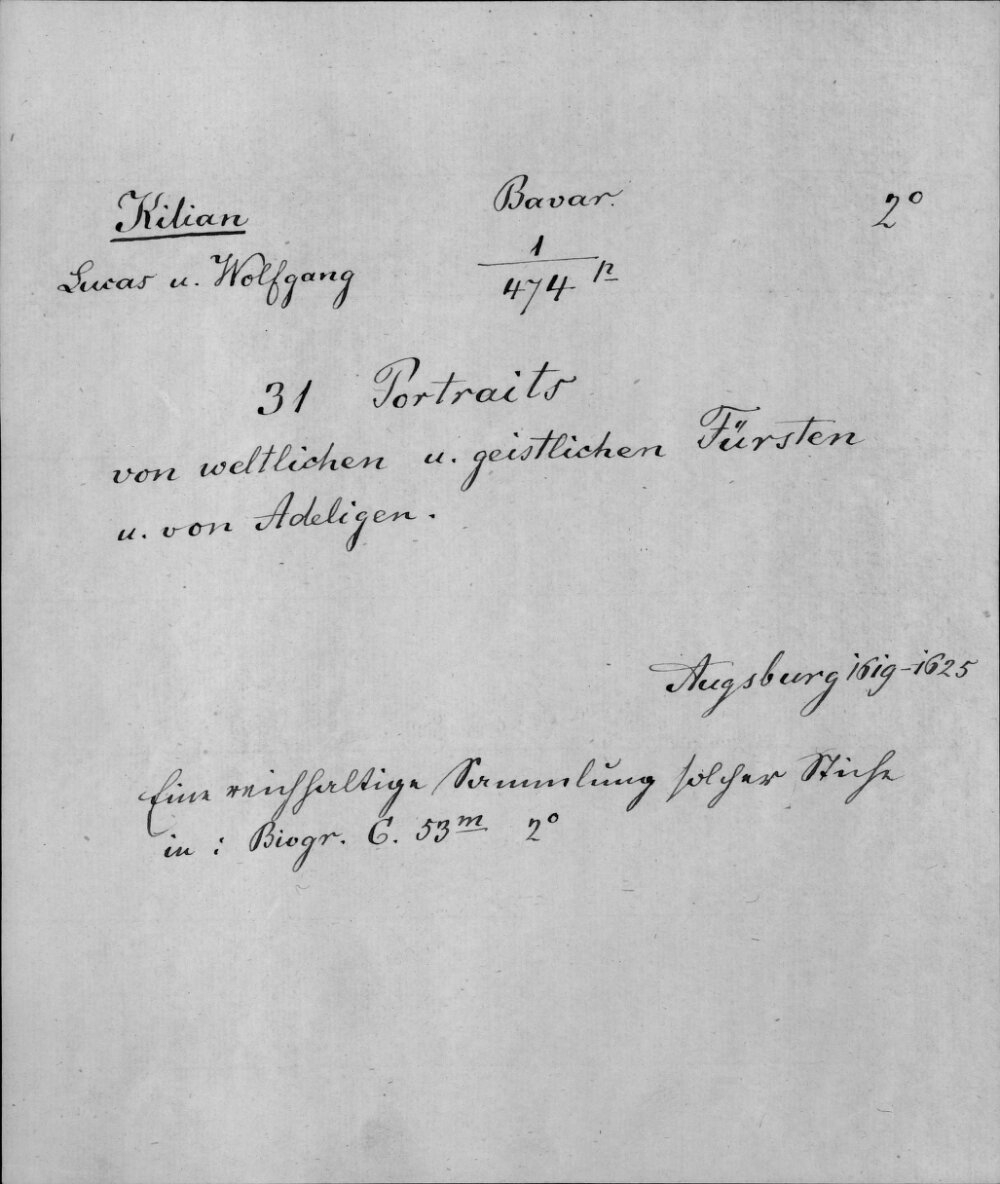 Kilian
Lucas u. Wolfgang
Bavar.
1
474 p
2°
31 Portraits
von weltlichen u. geistlichen Fürsten
u. von Adeligen.
Augsburg 1619-1625
Eine reichhaltige Sammlung solcher Stiche
in : Biogr. C. 53m 2°